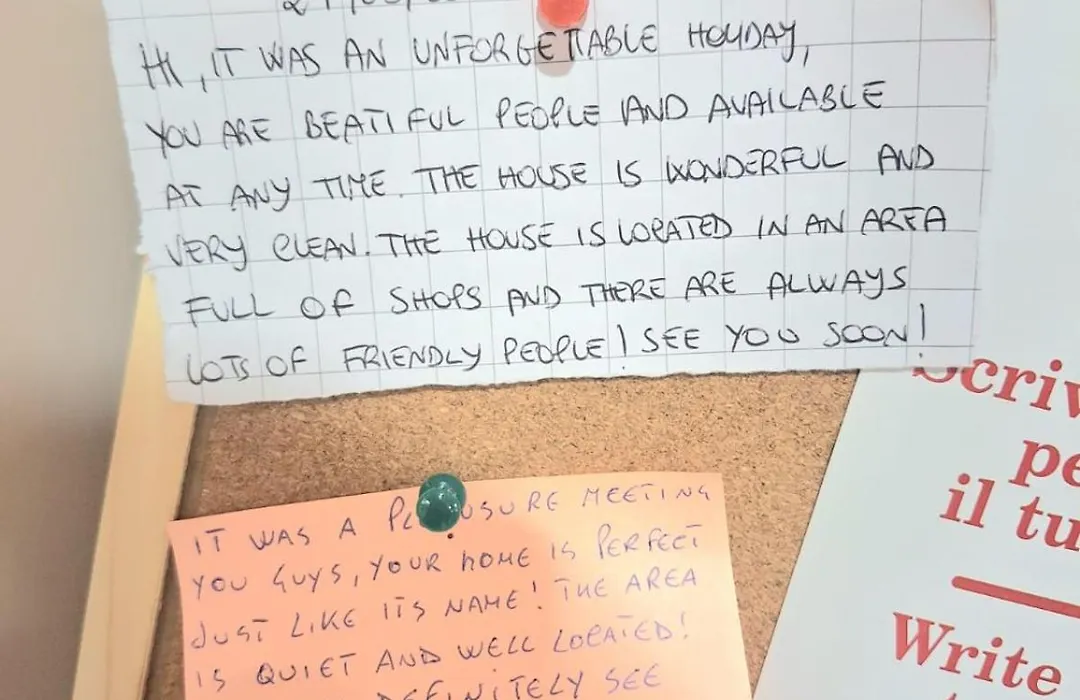 HI, IT WAS AN UNFORGETTABLE HOLIDAY,
YOU ARE BEATIFUL PEOPLE AND AVAILABLE
AT ANY TIME. THE HOUSE IS WONDERFUL AND
VERY CLEAN. THE HOUSE IS LOCATED IN AN AREA
FULL OF SHOPS AND THERE ARE ALWAYS
LOTS OF FRIENDLY PEOPLE! SEE YOU SOON!
IT WAS A MEETING
YOU GUYS, YOUR HOME IS PERFECT
JUST LIKE ITS NAME! THE AREA
IS QUIET AND WELL LOCATED!
DEFINITELY SEE
Scriv
pe
il tu
Write